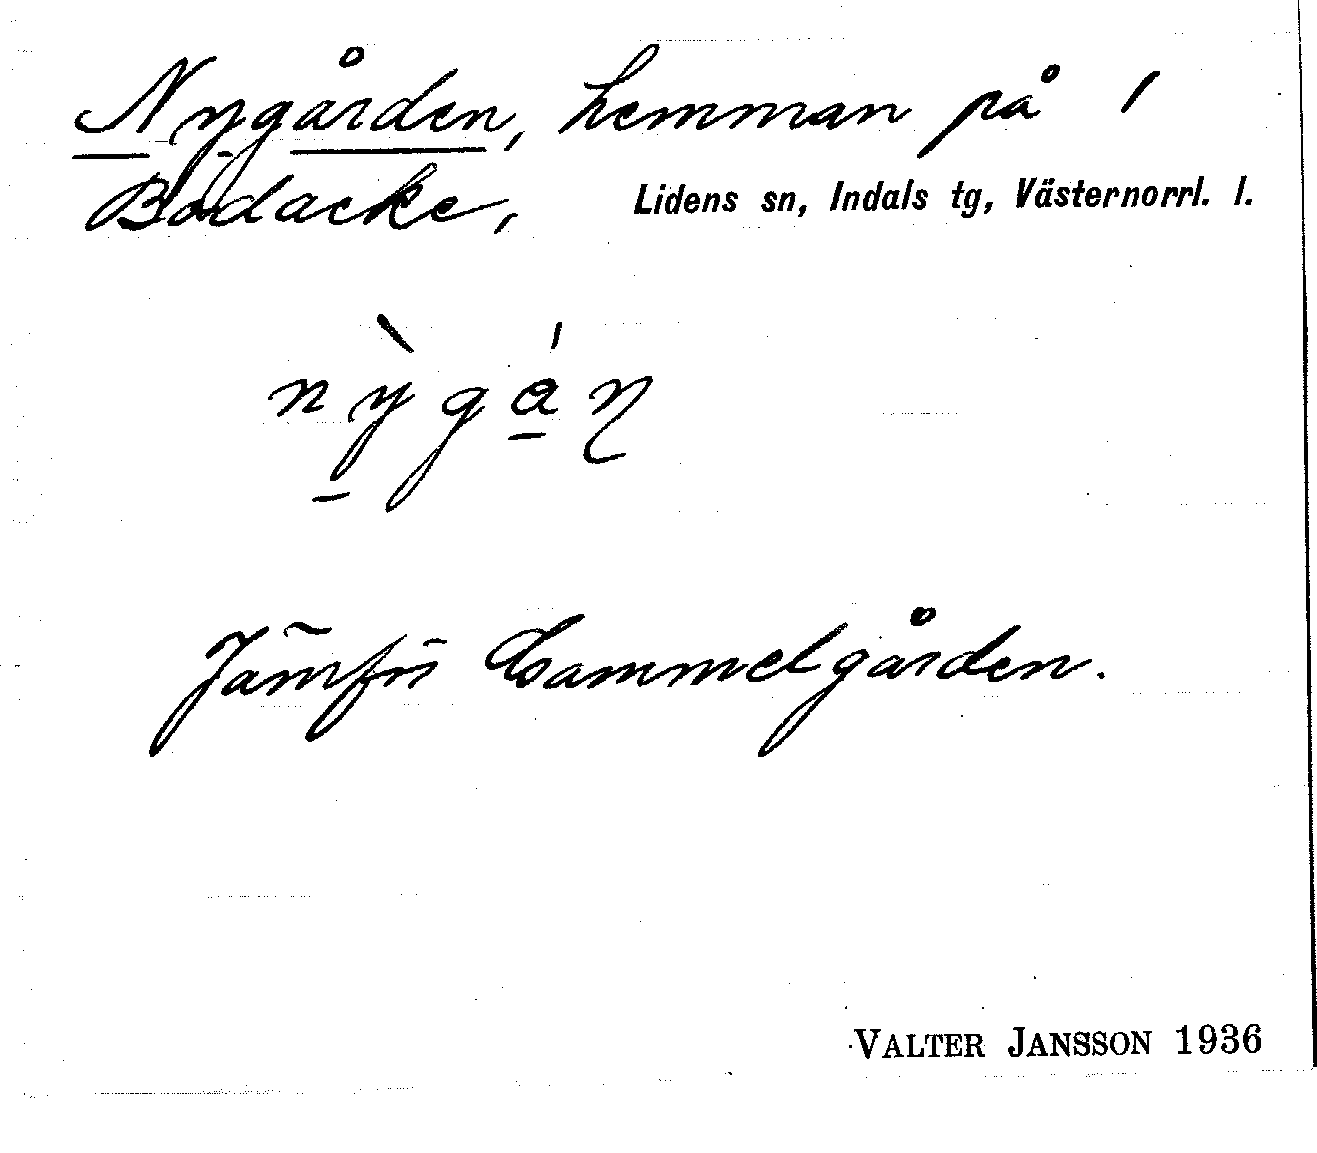 Nygården, hemman på 1
Bodacke, Lidens sn, Indals tg, Västernorrl. l.
nỳgáṇ
Jämför Gammelgården.
VALTER JANSSON 1936